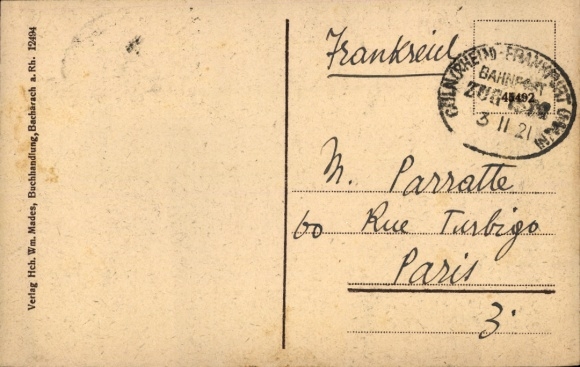 Verlag Hch. Wm. Mades, Buchhandlung, Bacharach a. Rh. 12494
Frankreich
CÖLN (RHEIN) - FRANKFURT (MAIN)
BAHNPOST
ZUG
45492
3 11 21
M. Parratte
60 Rue Turbigo
Paris
3.